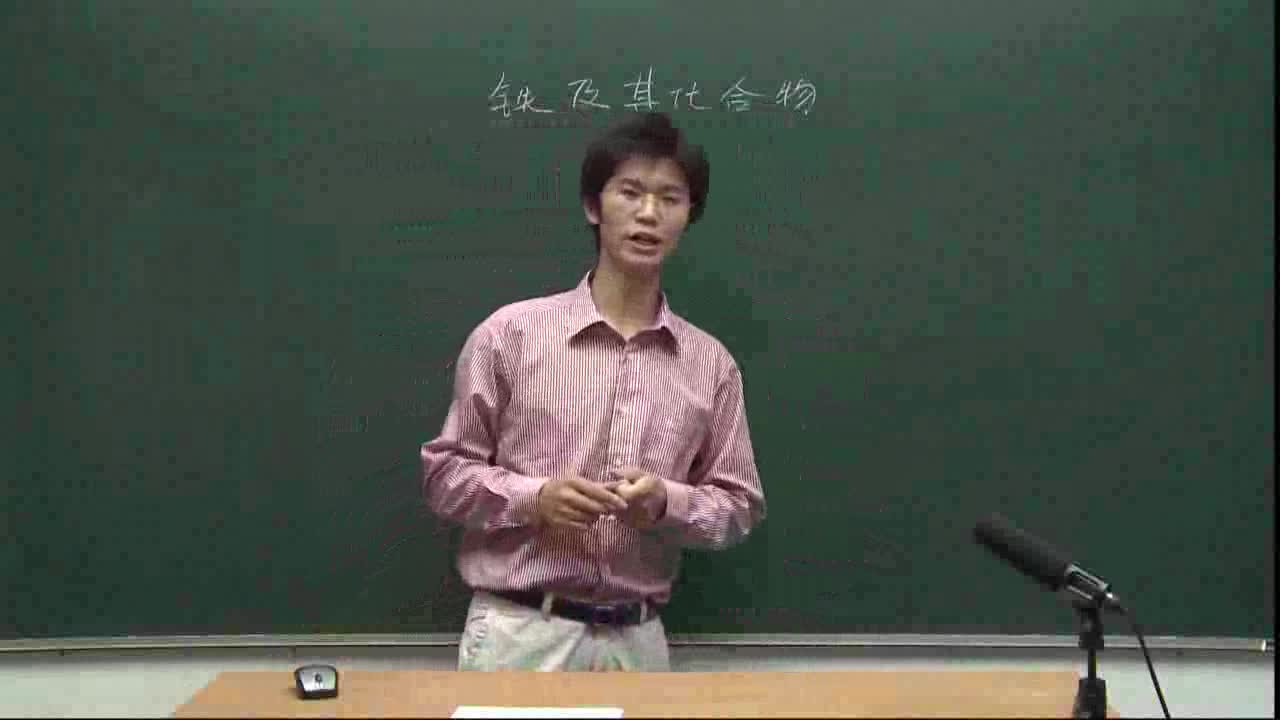 铁及其化合物